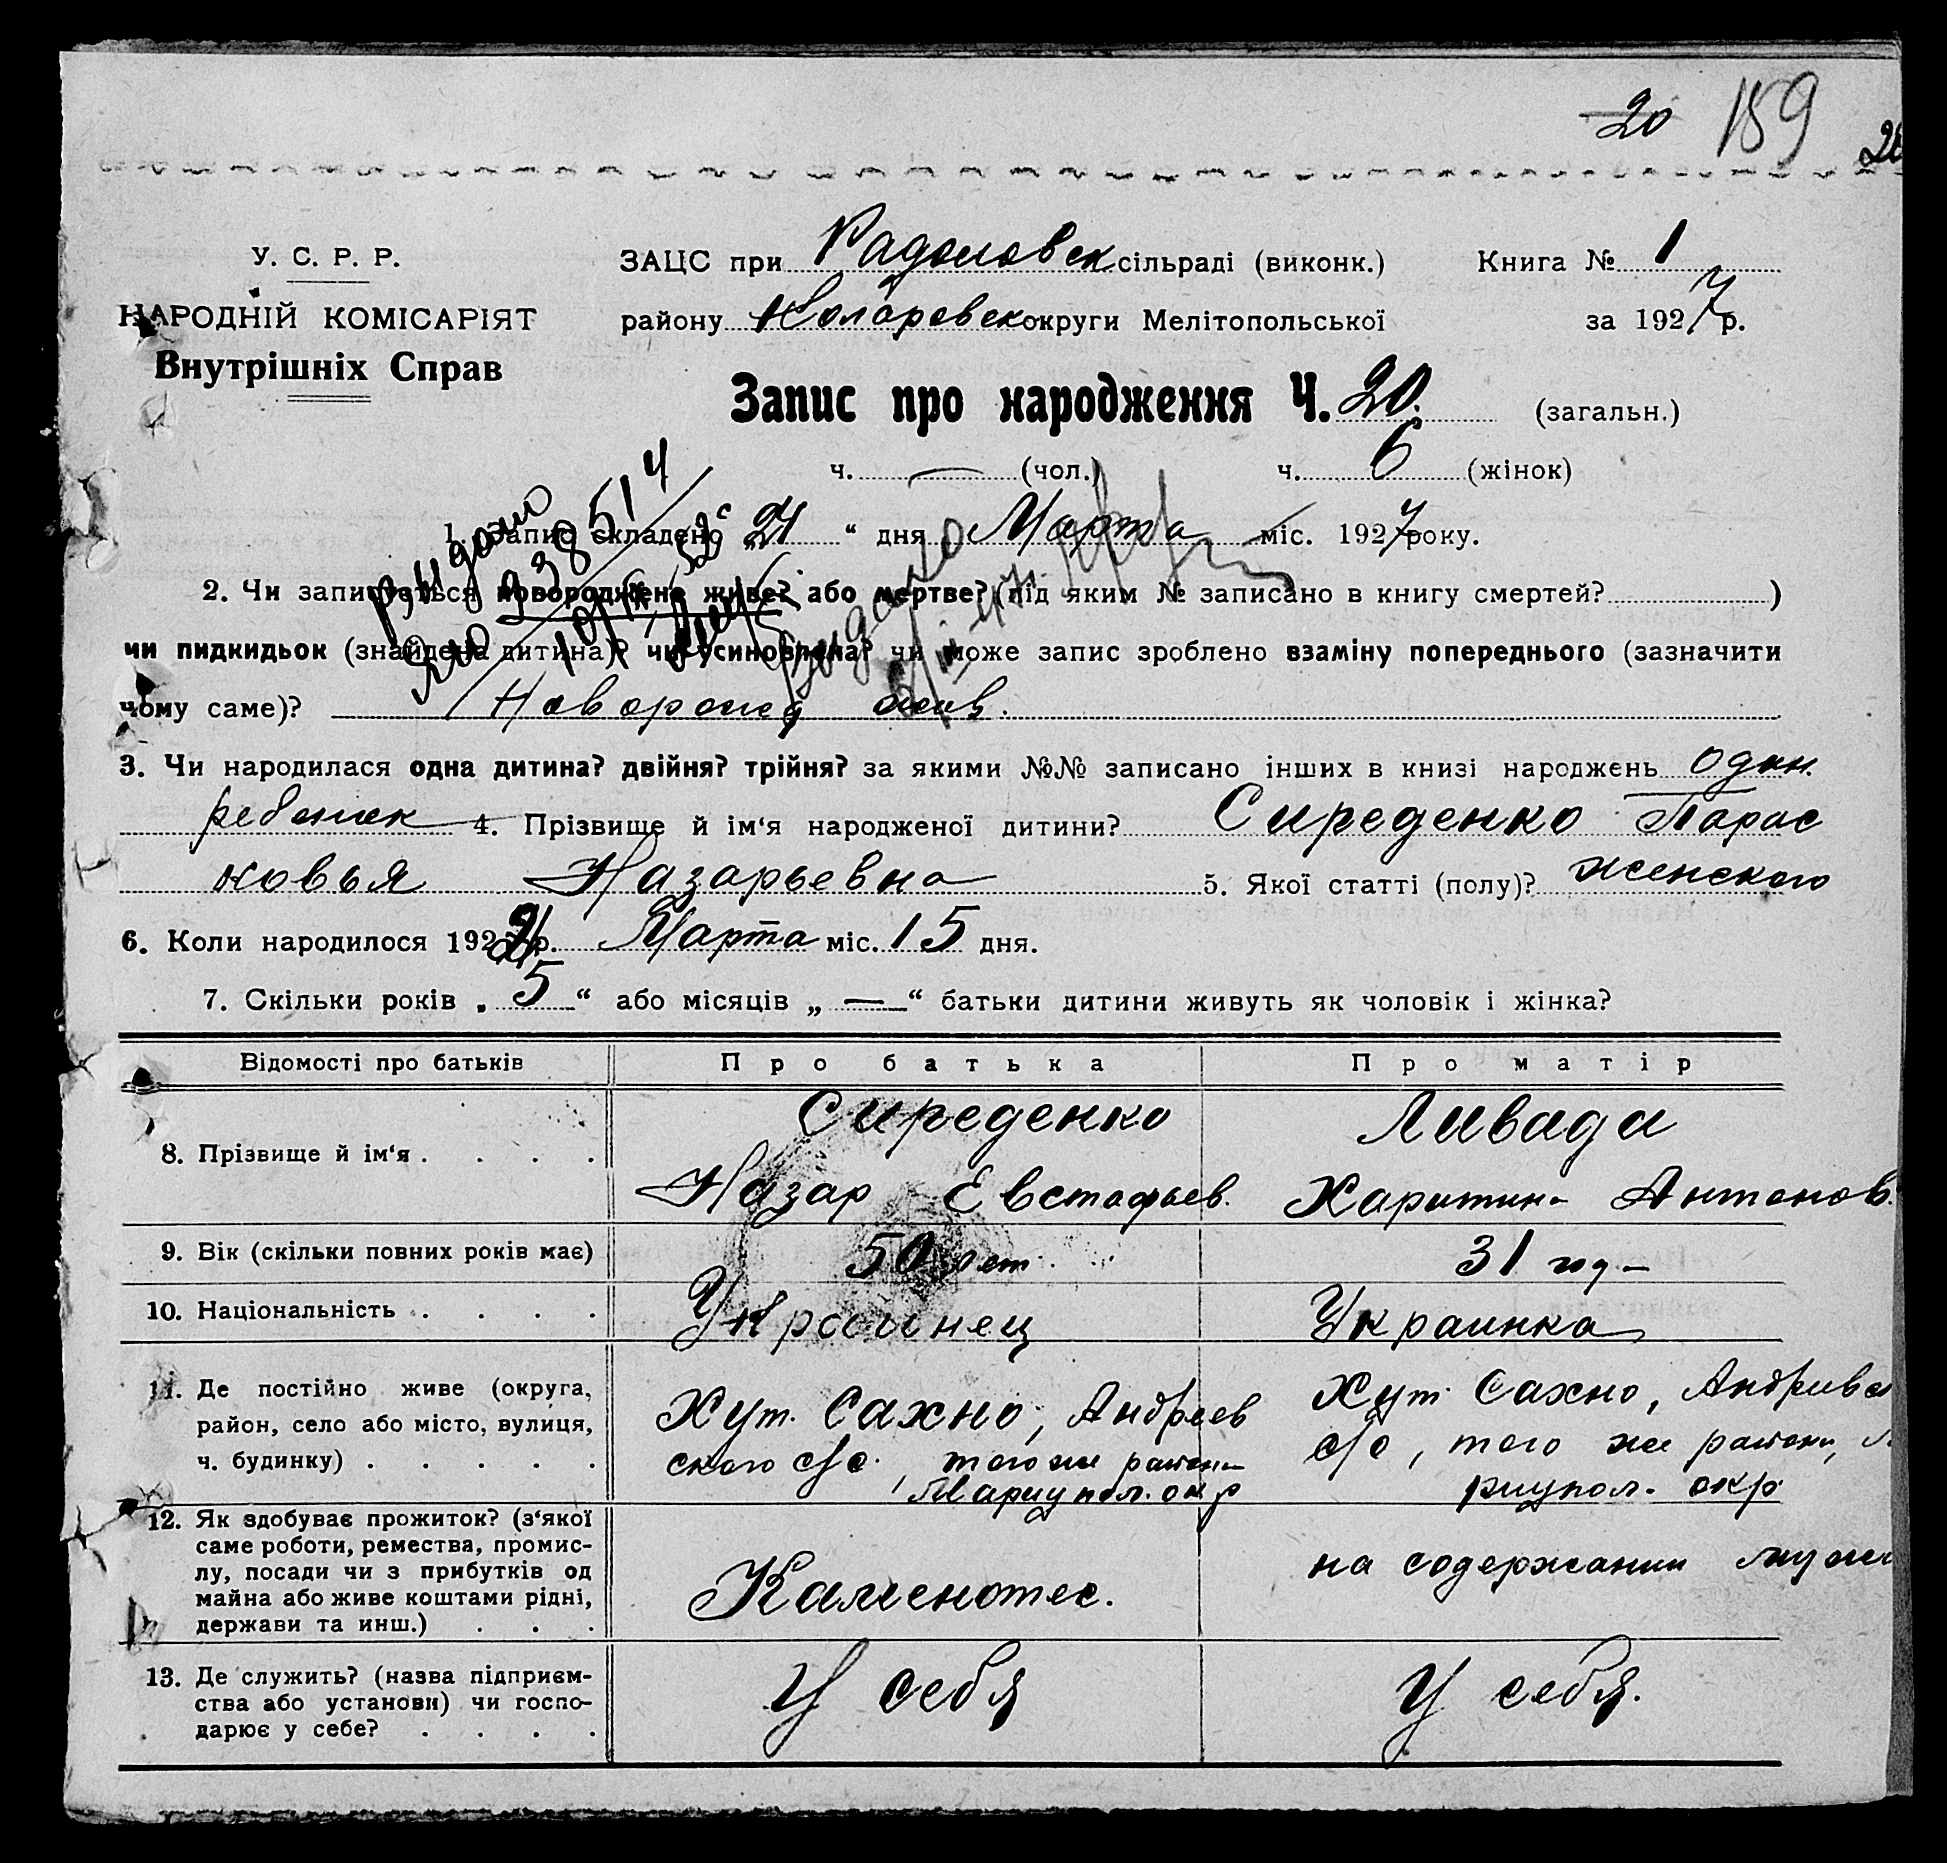 20 159 20
У. С. Р. Р.
ЗАЦС при Радоловек сільраді (виконк.) Книга № 1
НАРОДНІЙ КОМІСАРІЯТ
району Коларовск округи Мелітопольської за 1927 р.
Внутрішніх Справ
Запис про народження Ч. 20. (загальн.)
ч. — (чол.) ч. 6 (жінок)
1. Запис складено „24“ дня Марта міс. 1927 року.
2. Чи записується новороджене живе? або мертве? (під яким № записано в книгу смертей? )
чи пидкидьок (знайдена дитина)? чи усиновлена? чи може запис зроблено взаміну попереднього (зазначити
чому саме)?Новорожд жив.
3. Чи народилася одна дитина? двійня? трійня? за якими №№ записано інших в книзі народжень один.
ребенок 4. Прізвище й ім‘я народженої дитини? Сиреденко Парас
ковья Назарьевна 5. Якої статті (полу)? женского
6. Коли народилося 192 р. Марта міс. 15 дня.
7. Скільки років „5“ або місяців „—“ батьки дитини живуть як чоловік і жінка?
Відомості про батьків Про батька Про матір
Сиреденко Ливада
8. Прізвище й ім‘я . . . .
Назар Евстафьев. Харитин- Антонов.
9. Вік (скільки повних років має) 50 лет 31 год-
10. Національність . . . . Украинец Украинка
11. Де постійно живе (округа,
район, село або місто, вулиця,
ч. будинку) . . . . .
Хут. Сахно, Андреев
ского с/с. того же района
Мариупол. окр
Хут Сахно, Андриев
с/с, того же района,
риупол. окр
12. Як здобуває прожиток? (з‘якої
саме роботи, ремества, промис-
лу, посади чи з прибутків од
майна або живе коштами рідні,
держави та инш.) . . .
Каменотес.
на содержании мужа
13. Де служить? (назва підприєм-
ства або установи) чи госпо-
дарює у себе? . . . .
У себя
У себя.